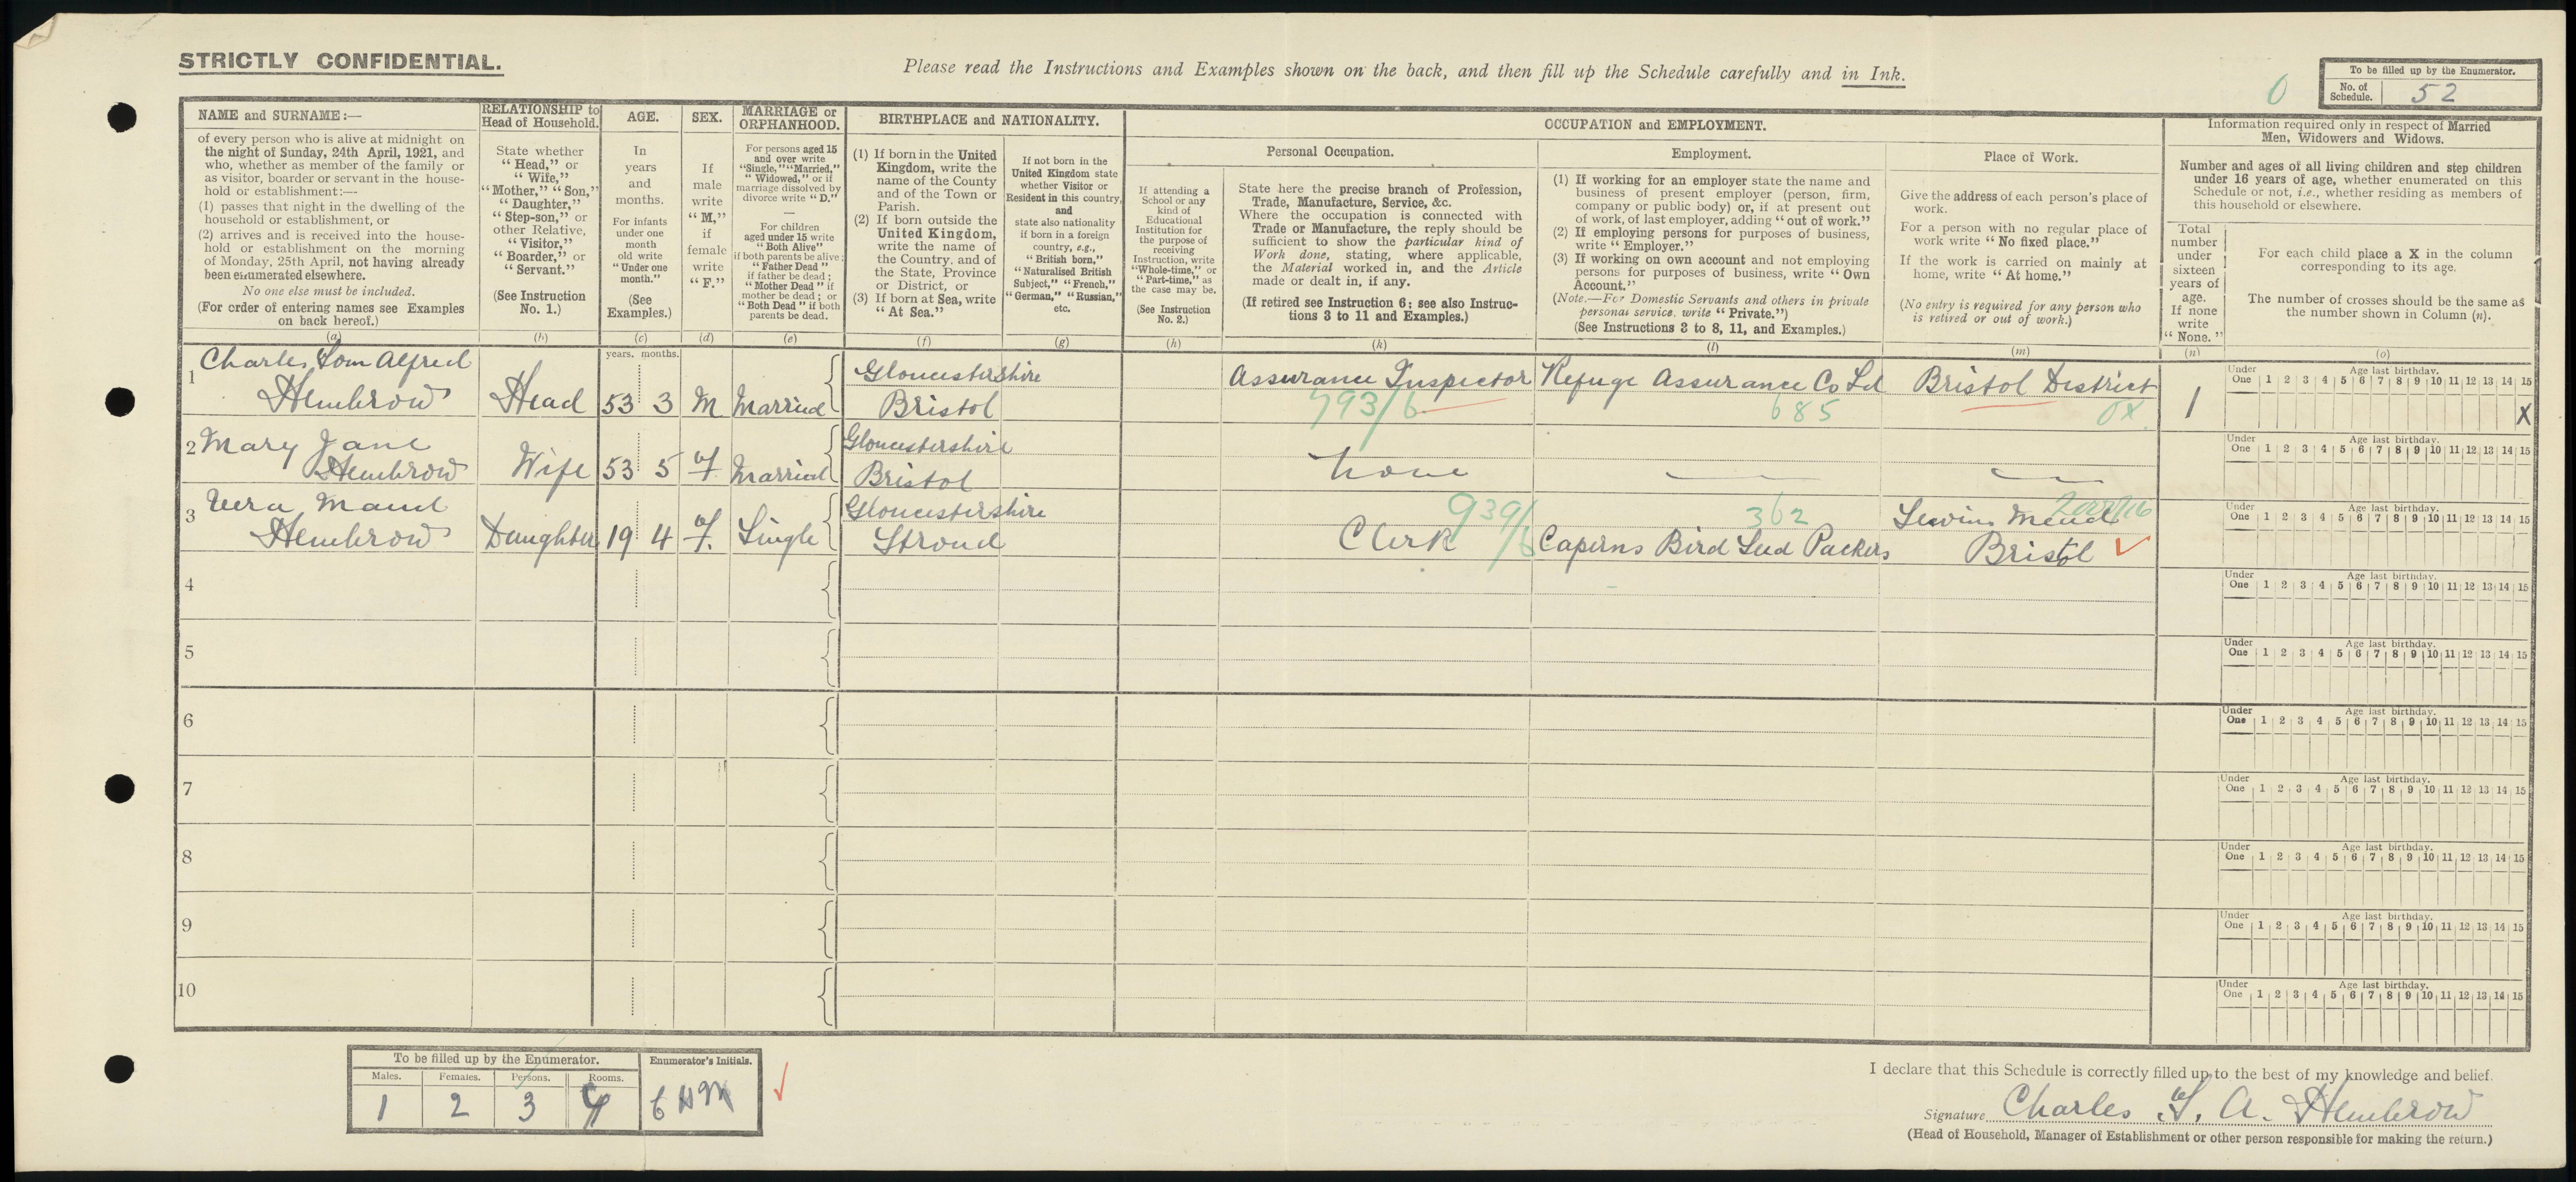 STRICTLY CONFIDENTIAL.
Please read the Instructions and Examples shown on the back, and then fill up the Schedule carefully and in Ink.
To be filled up by the Enumerator.
No. of Schedule. 52
0
NAME and SURNAME:—
of every person who is alive at midnight on
the night of Sunday, 24th April, 1921, and
who, whether as member of the family or
as visitor, boarder or servant in the house-
hold or establishment:—
(1) passes that night in the dwelling of the
household or establishment, or
(2) arrives and is received into the house-
hold or establishment on the morning
of Monday, 25th April, not having already
been enumerated elsewhere.
No one else must be included.
(For order of entering names see Examples
on back hereof.)
(a)
RELATIONSHIP to
Head of Household.
State whether
"Head," or
"Wife,"
"Mother," "Son,"
"Daughter,"
"Step-son," or
other Relative,
"Visitor,"
"Boarder," or
"Servant."
(See Instruction
No. 1.)
(b)
AGE.
In
years
and
months.
For infants
under one
month
old write
"Under one
month."
(See
Examples.)
(c)
SEX.
If
male
write
"M,"
if
female
write
"F."
(d)
MARRIAGE or
ORPHANHOOD.
For persons aged 15
and over write
"Single," "Married,"
"Widowed," or if
marriage dissolved by
divorce write "D."
—
For children
aged under 15 write
"Both Alive"
if both parents be alive;
"Father Dead"
if father be dead;
"Mother Dead" if
mother be dead; or
"Both Dead" if both
parents be dead.
(e)
BIRTHPLACE and NATIONALITY.
(1) If born in the United
Kingdom, write the
name of the County
and of the Town or
Parish.
(2) If born outside the
United Kingdom,
write the name of
the Country, and of
the State, Province
or District, or
(3) If born at Sea, write
"At Sea."
(f)
If not born in the
United Kingdom state
whether Visitor or
Resident in this country,
and
state also nationality
if born in a foreign
country, e.g.,
"British born,"
"Naturalised British
Subject," "French,"
"German," "Russian,"
etc.
(g)
OCCUPATION and EMPLOYMENT.
Personal Occupation.
If attending a
School or any
kind of
Educational
Institution for
the purpose of
receiving
Instruction, write
"Whole-time," or
"Part-time," as
the case may be.
(See Instruction
No. 2.)
(h)
State here the precise branch of Profession,
Trade, Manufacture, Service, &c.
Where the occupation is connected with
Trade or Manufacture, the reply should be
sufficient to show the particular kind of
Work done, stating, where applicable,
the Material worked in, and the Article
made or dealt in, if any.
(If retired see Instruction 6; see also Instruc-
tions 3 to 11 and Examples.)
(k)
Employment.
(1) If working for an employer state the name and
business of present employer (person, firm,
company or public body) or, if at present out
of work, of last employer, adding "out of work."
(2) If employing persons for purposes of business,
write "Employer."
(3) If working on own account and not employing
persons for purposes of business, write "Own
Account."
(Note.—For Domestic Servants and others in private
personal service, write "Private.")
(See Instructions 3 to 8, 11, and Examples.)
(l)
Place of Work.
Give the address of each person's place of
work.
For a person with no regular place of
work write "No fixed place."
If the work is carried on mainly at
home, write "At home."
(No entry is required for any person who
is retired or out of work.)
(m)
Information required only in respect of Married
Men, Widowers and Widows.
Number and ages of all living children and step children
under 16 years of age, whether enumerated on this
Schedule or not, i.e., whether residing as members of
this household or elsewhere.
Total
number
under
sixteen
years of
age.
If none
write
"None."
(n)
For each child place a X in the column
corresponding to its age.
The number of crosses should be the same as
the number shown in Column (n).
(o)
years. months.
1 Charles Tom Alfred
Hembrow Head 53 3 M Married
Gloucestershire
Bristol
Assurance Inspector Refuge Assurance Co Ld Bristol District 1
793/6 685 0X
Under One 1 2 3 4 5 6 7 8 9 10 11 12 13 14 15
Age last birthday.
X
2 Mary Jane
Hembrow Wife 53 5 F Married
Gloucestershire
Bristol
None
Under One 1 2 3 4 5 6 7 8 9 10 11 12 13 14 15
Age last birthday.
3 Vera Maud
Hembrow Daughter 19 4 F. Single
Gloucestershire
Stroud
939/6 362
Clerk Caperns Bird Seed Packers
Lewins Mead
Bristol
Under One 1 2 3 4 5 6 7 8 9 10 11 12 13 14 15
Age last birthday.
4
Under One 1 2 3 4 5 6 7 8 9 10 11 12 13 14 15
Age last birthday.
5
Under One 1 2 3 4 5 6 7 8 9 10 11 12 13 14 15
Age last birthday.
6
Under One 1 2 3 4 5 6 7 8 9 10 11 12 13 14 15
Age last birthday.
7
Under One 1 2 3 4 5 6 7 8 9 10 11 12 13 14 15
Age last birthday.
8
Under One 1 2 3 4 5 6 7 8 9 10 11 12 13 14 15
Age last birthday.
9
Under One 1 2 3 4 5 6 7 8 9 10 11 12 13 14 15
Age last birthday.
10
Under One 1 2 3 4 5 6 7 8 9 10 11 12 13 14 15
Age last birthday.
To be filled up by the Enumerator.
Enumerator's Initials.
Males. Females. Persons. Rooms.
1 2 3
I declare that this Schedule is correctly filled up to the best of my knowledge and belief.
Signature Charles T. A. Hembrow
(Head of Household, Manager of Establishment or other person responsible for making the return.)